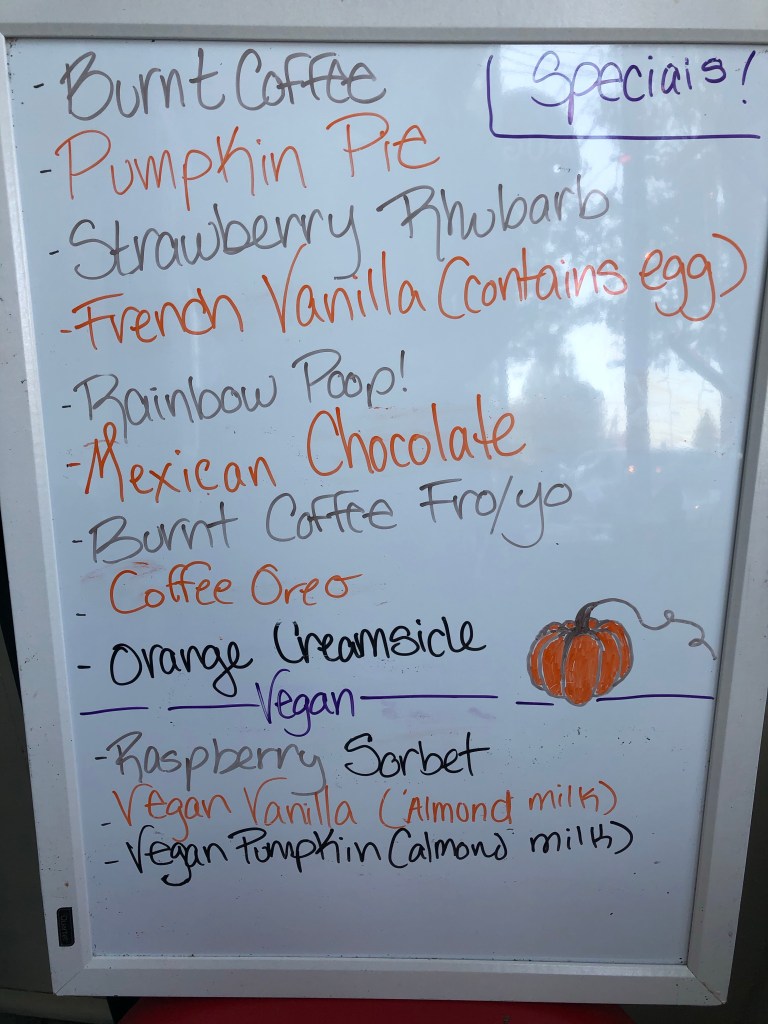 Specials!
- Burnt Coffee
- Pumpkin Pie
- Strawberry Rhubarb
- French Vanilla (contains egg)
- Rainbow Poop!
- Mexican Chocolate
- Burnt Coffee Fro/yo
- Coffee Oreo
- Orange Creamsicle
Vegan
- Raspberry Sorbet
- Vegan Vanilla (Almond milk)
- Vegan Pumpkin (almond milk)